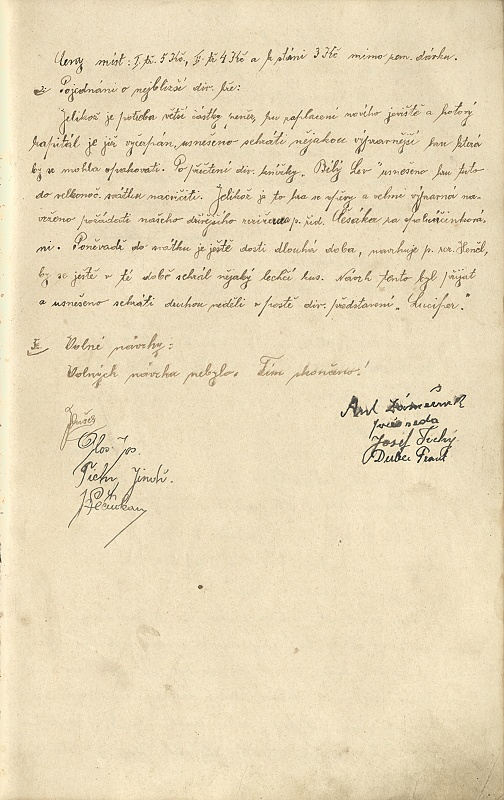 Ceny míst: I. tř. 5 Kč, II. tř 4 Kč a k stání 3 Kč mimo zem. dávku.
Pojednání o nejbližší div. hře:
Jelikož je potřeba větší částky peněz, ku zaplacení nového jeviště a hotový
kapitál je již vyčerpán, usneseno sehráti nějakou výpravnější hru která
by se mohla opakovati. Po přečtení div. knížky "Bílý Lev" usneseno hru tuto
do velkonoč. svátku nacvičiti. Jelikož je to hra se zpěvy a velmi výpravná na-
vrženo požádati našeho dřívějšího režiséra p. řid. Císaře za spoluúčinková-
ní. Poněvadž do svátku je ještě dosti dlouhá doba, navrhuje p. rež.
by se ještě v té době sehrál nějaký lehčí kus. Návrh tento byl přijat
a usneseno sehráti druhou neděli v postě div. představení "Lucifer."
Volné návrhy:
Volných návrhů nebylo. Tím skončeno!
Ant
předseda
Jos.
Josef Tichý
Jindř.